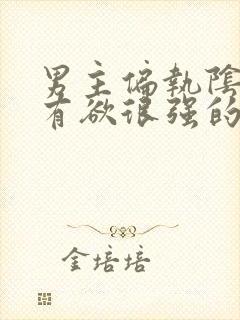 男主偏執陰
有欲很强的
金培培